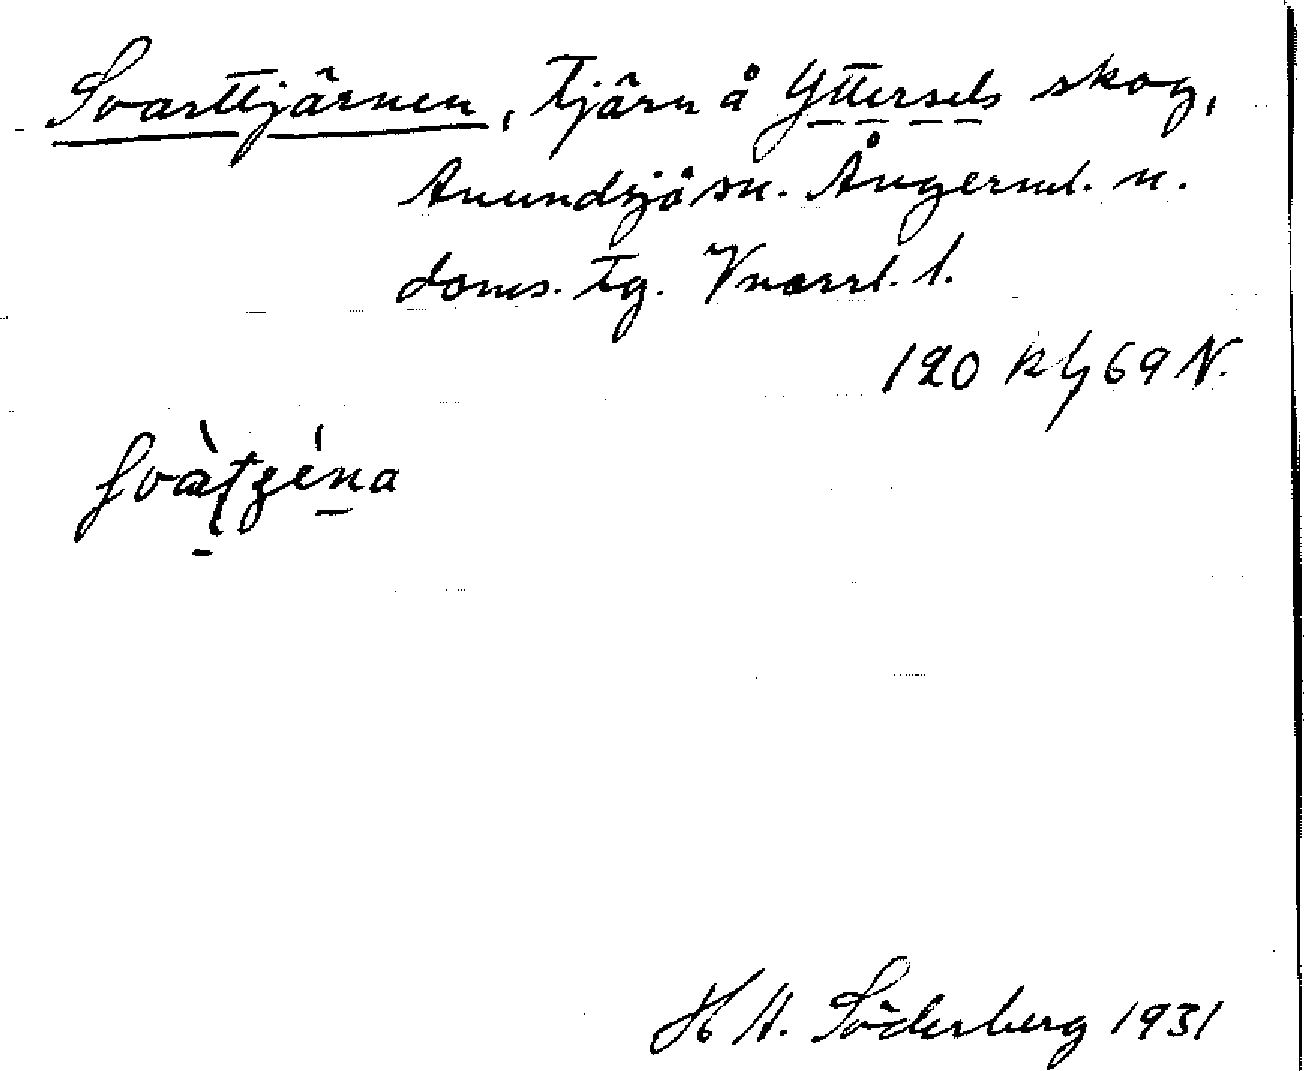 Svarttjärnen, tjärn å Yttersels skog,
Anundsjö sn. Ångerml. n.
doms. tg. Vnorrl. l.
120 69 N.
H A. Söderberg 1931